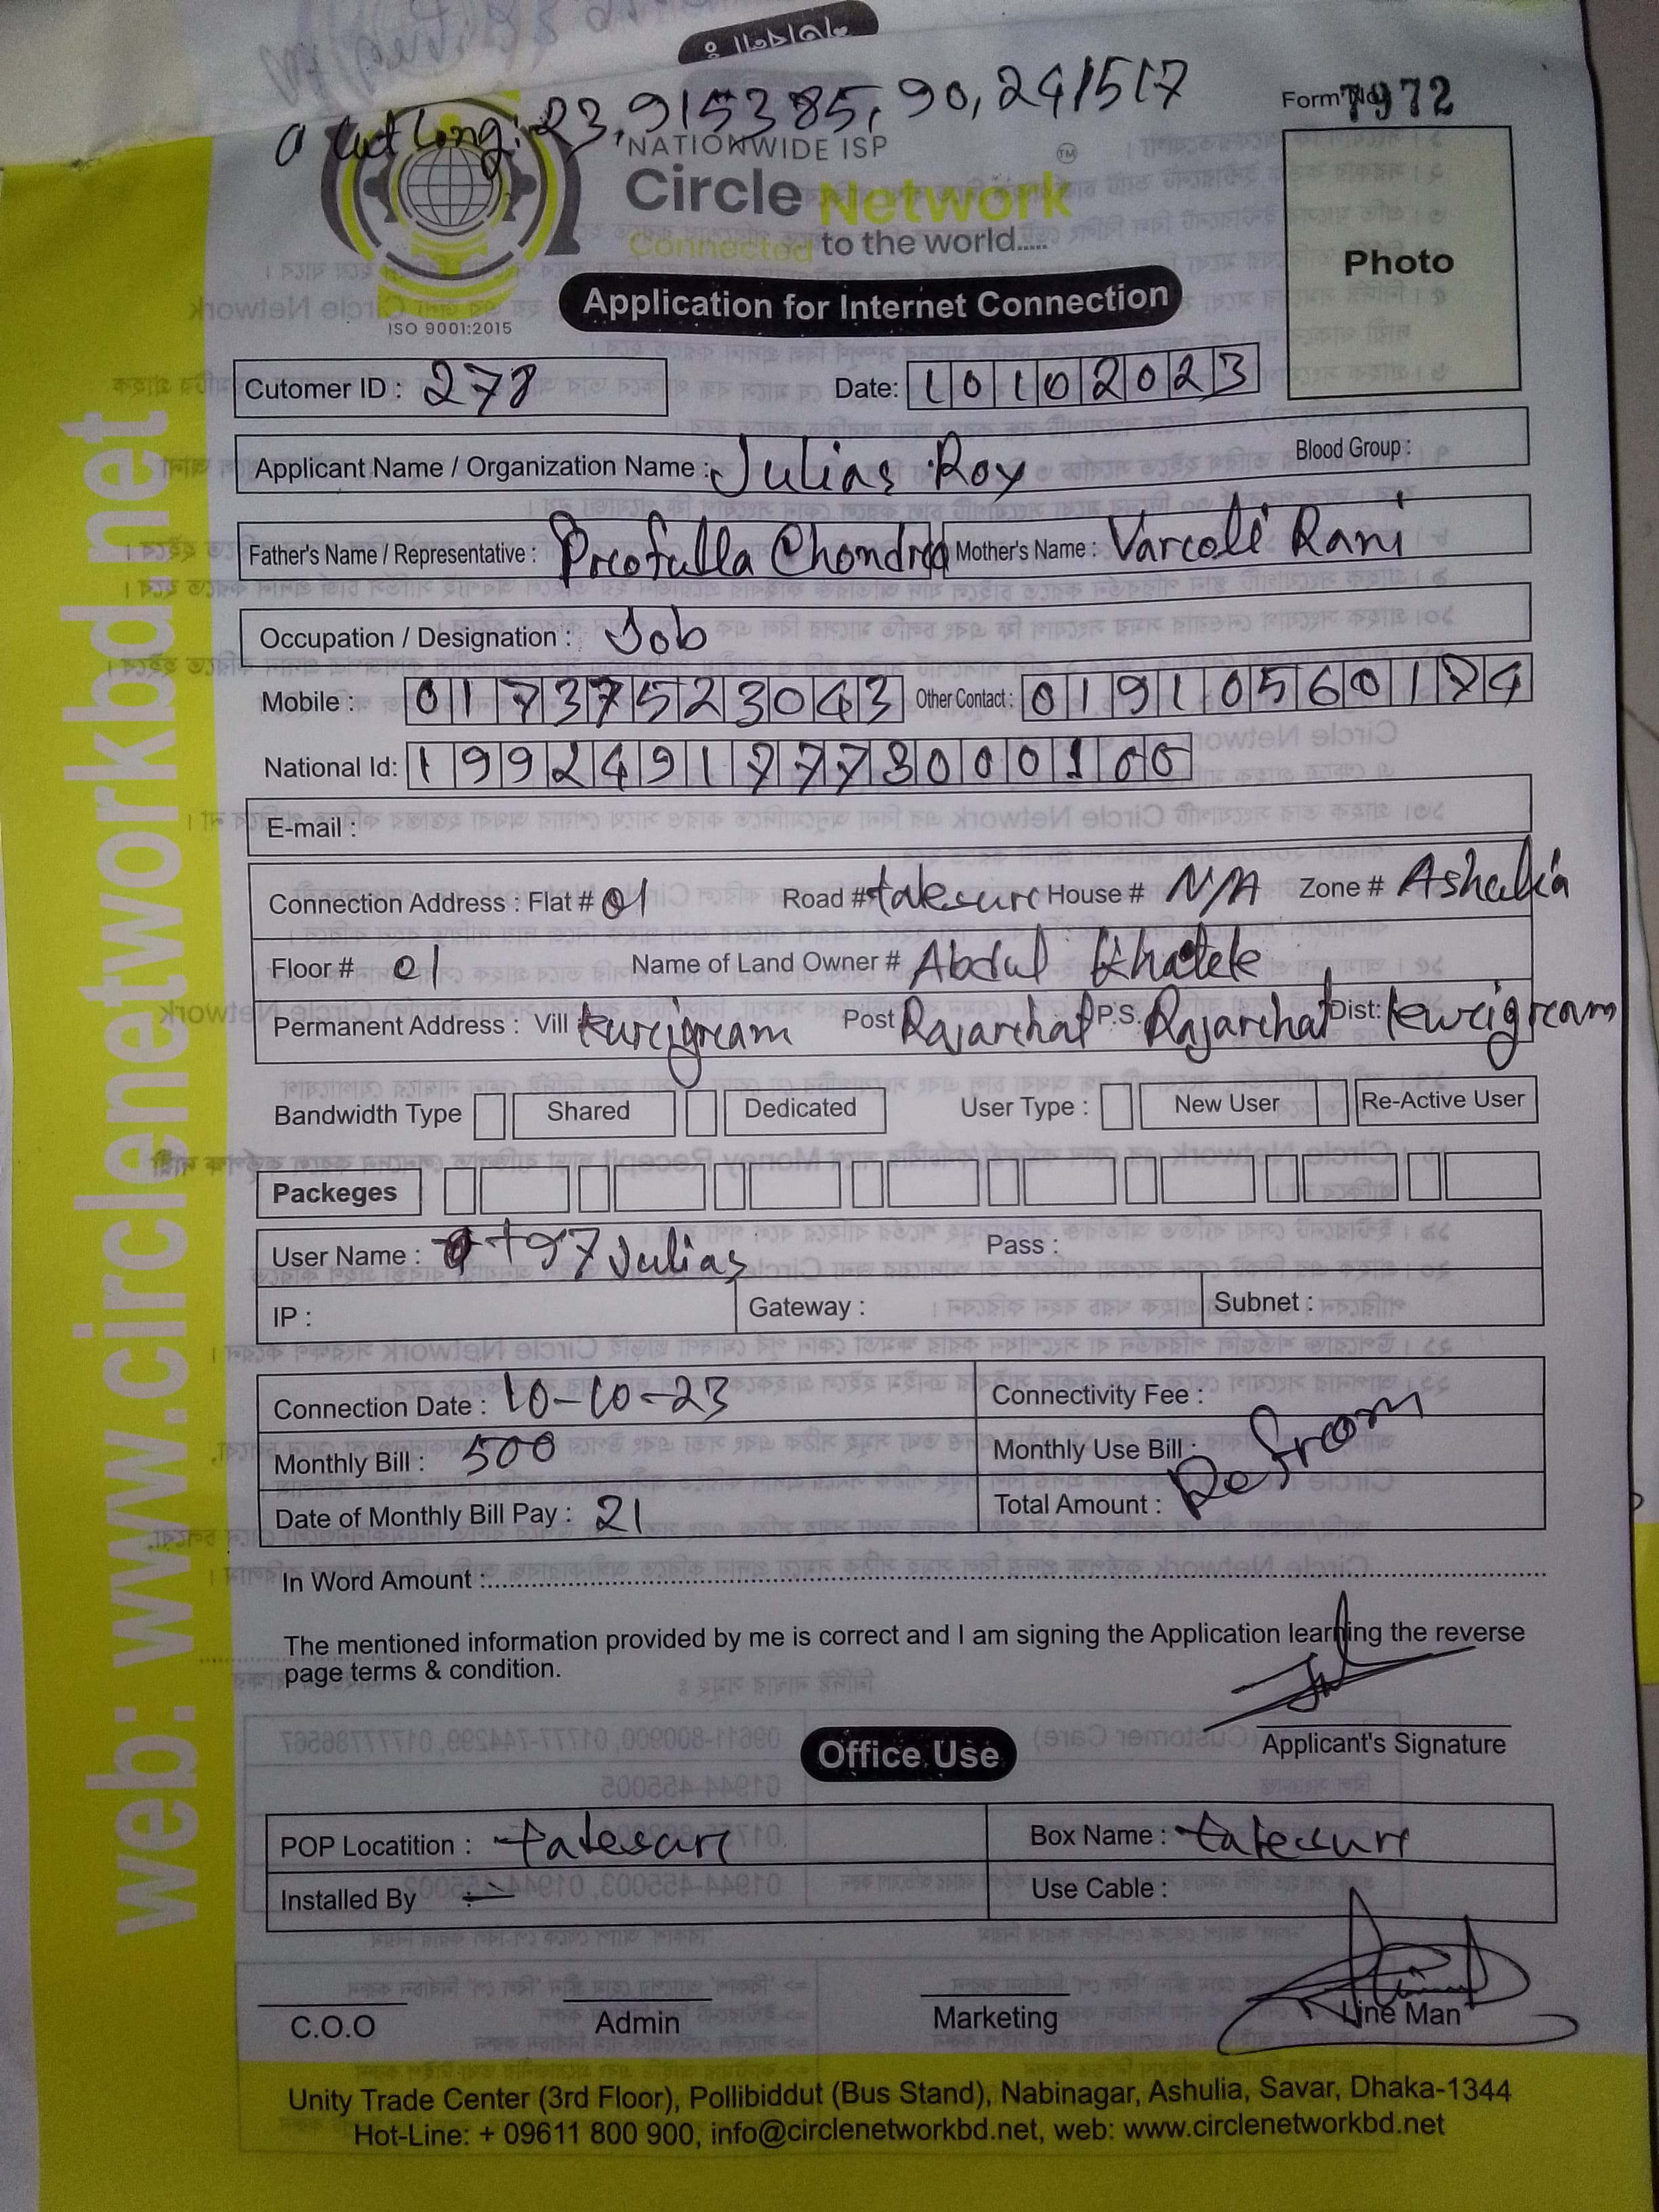 Lat Long: 23,915385, 90,241517
Form No 7972
NATIONWIDE ISP
TM
Circle Network
Connected to the world.....
ISO 9001:2015
Photo
Application for Internet Connection
Cutomer ID : 278 Date: 10102023
Applicant Name / Organization Name : Julias Roy Blood Group :
Father's Name / Representative : Procfulla Chondra Mother's Name : Varcoti Rani
Occupation / Designation : Job
Mobile : 01737523043 Other Contact : 01910560174
National Id: 19924917773000100
E-mail :
Connection Address : Flat # 01 Road # takesurc House # N/A Zone # Ashulia
Floor # 01 Name of Land Owner # Abdul Khalek
Permanent Address : Vill kurcigream Post Rajarchat P.S. Rajarchat Dist: kurcigream
Bandwidth Type Shared Dedicated User Type : New User Re-Active User
Packeges
User Name : Julias Pass :
IP : Gateway : Subnet :
Connection Date : 10-10-23 Connectivity Fee :
Monthly Bill : 500 Monthly Use Bill :
Date of Monthly Bill Pay : 21 Total Amount :
Re from
In Word Amount :
The mentioned information provided by me is correct and I am signing the Application learning the reverse
page terms & condition.
Applicant's Signature
Office Use
POP Locatition : tatesurc Box Name : tatesurc
Installed By Use Cable :
C.O.O Admin Marketing Line Man
Unity Trade Center (3rd Floor), Pollibiddut (Bus Stand), Nabinagar, Ashulia, Savar, Dhaka-1344
Hot-Line: + 09611 800 900, info@circlenetworkbd.net, web: www.circlenetworkbd.net
web: www.circlenetworkbd.net